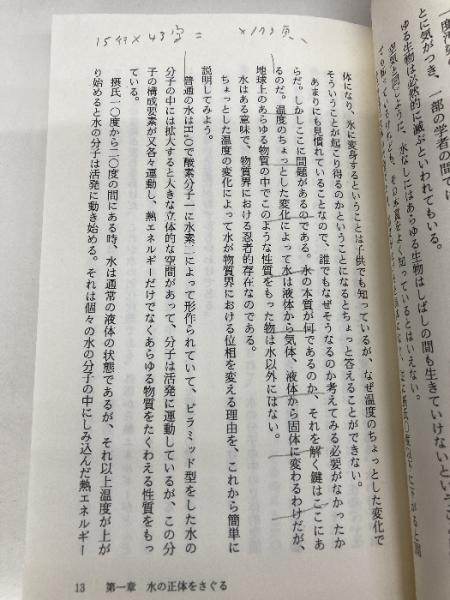 15行×43字= ×173頁、
一度汚染
とに気がつき、一部の学者の間では
ゆる生物は必然的に滅ぶといわれてもいる。
空気と同じように、水なしにはあらゆる生物はしばしの間も生きていけないという
体になり、氷に変身するということは子供でも知っているが、なぜ温度のちょっとした変化で
そういうことが起こり得るのかということになるとちょっと答えることができない。
あまりにも見慣れていることなので、誰でもなぜそうなるのか考えてみる必要がなかったか
らだ。しかしここに問題があるのである。水の本質が何であるのか、それを解く鍵はここにあ
るのだ。温度のちょっとした変化によって水は液体から気体、液体から固体に変わるわけだが、
地球上のあらゆる物質の中でこのような性質をもった物は水以外にはない。
水はある意味で、物質界における忍者的存在なのである。
ちょっとした温度の変化によって水が物質界における位相を変える理由を、これから簡単に
説明してみよう。
普通の水はH₂Oで酸素分子一に水素二によって形作られていて、ピラミッド型をした水の
分子の中には拡大すると大きな立体的な空間があって、分子は活発に運動しているが、この分
子の構成要素が又各々運動し、熱エネルギーだけでなくあらゆる物質をたくわえる性質をもっ
ている。
摂氏一〇度から二〇度の間にある時、水は通常の液体の状態であるが、それ以上温度が上が
り始めると水の分子は活発に動き始める。それは個々の水の分子の中にしみ込んだ熱エネルギー
13 第一章 水の正体をさぐる